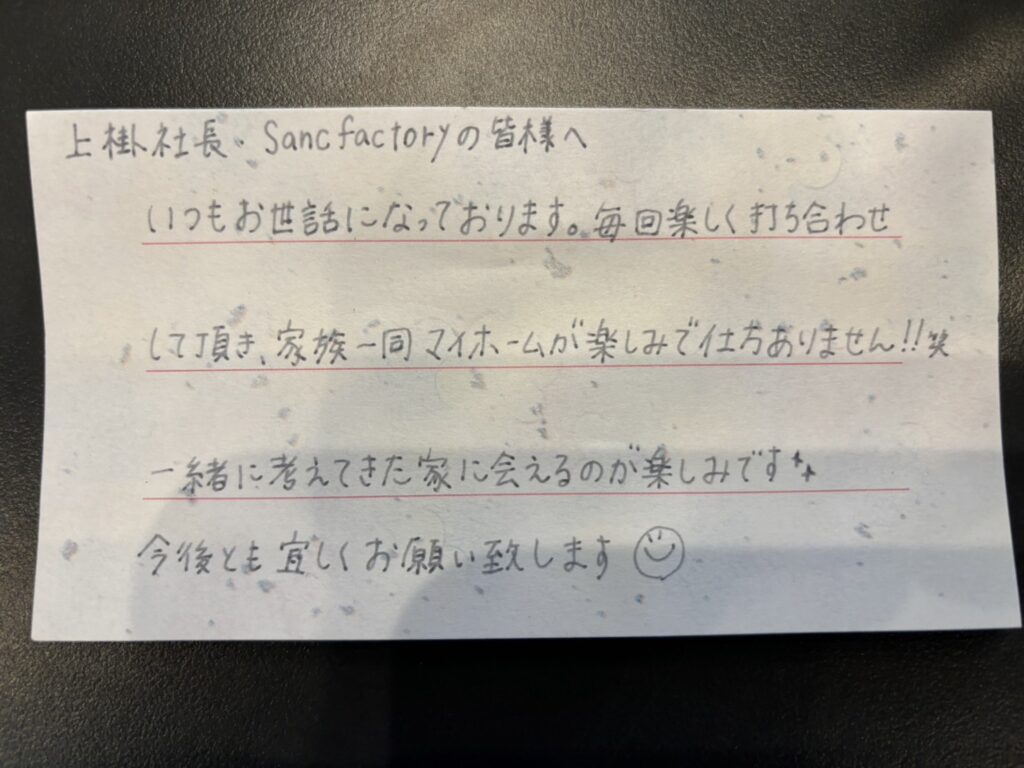 上掛社長・Sancfactoryの皆様へ
いつもお世話になっております。毎回楽しく打ち合わせ
して頂き、家族一同マイホームが楽しみで仕方ありません!!笑
一緒に考えてきた家に会えるのが楽しみです
今後とも宜しくお願い致します